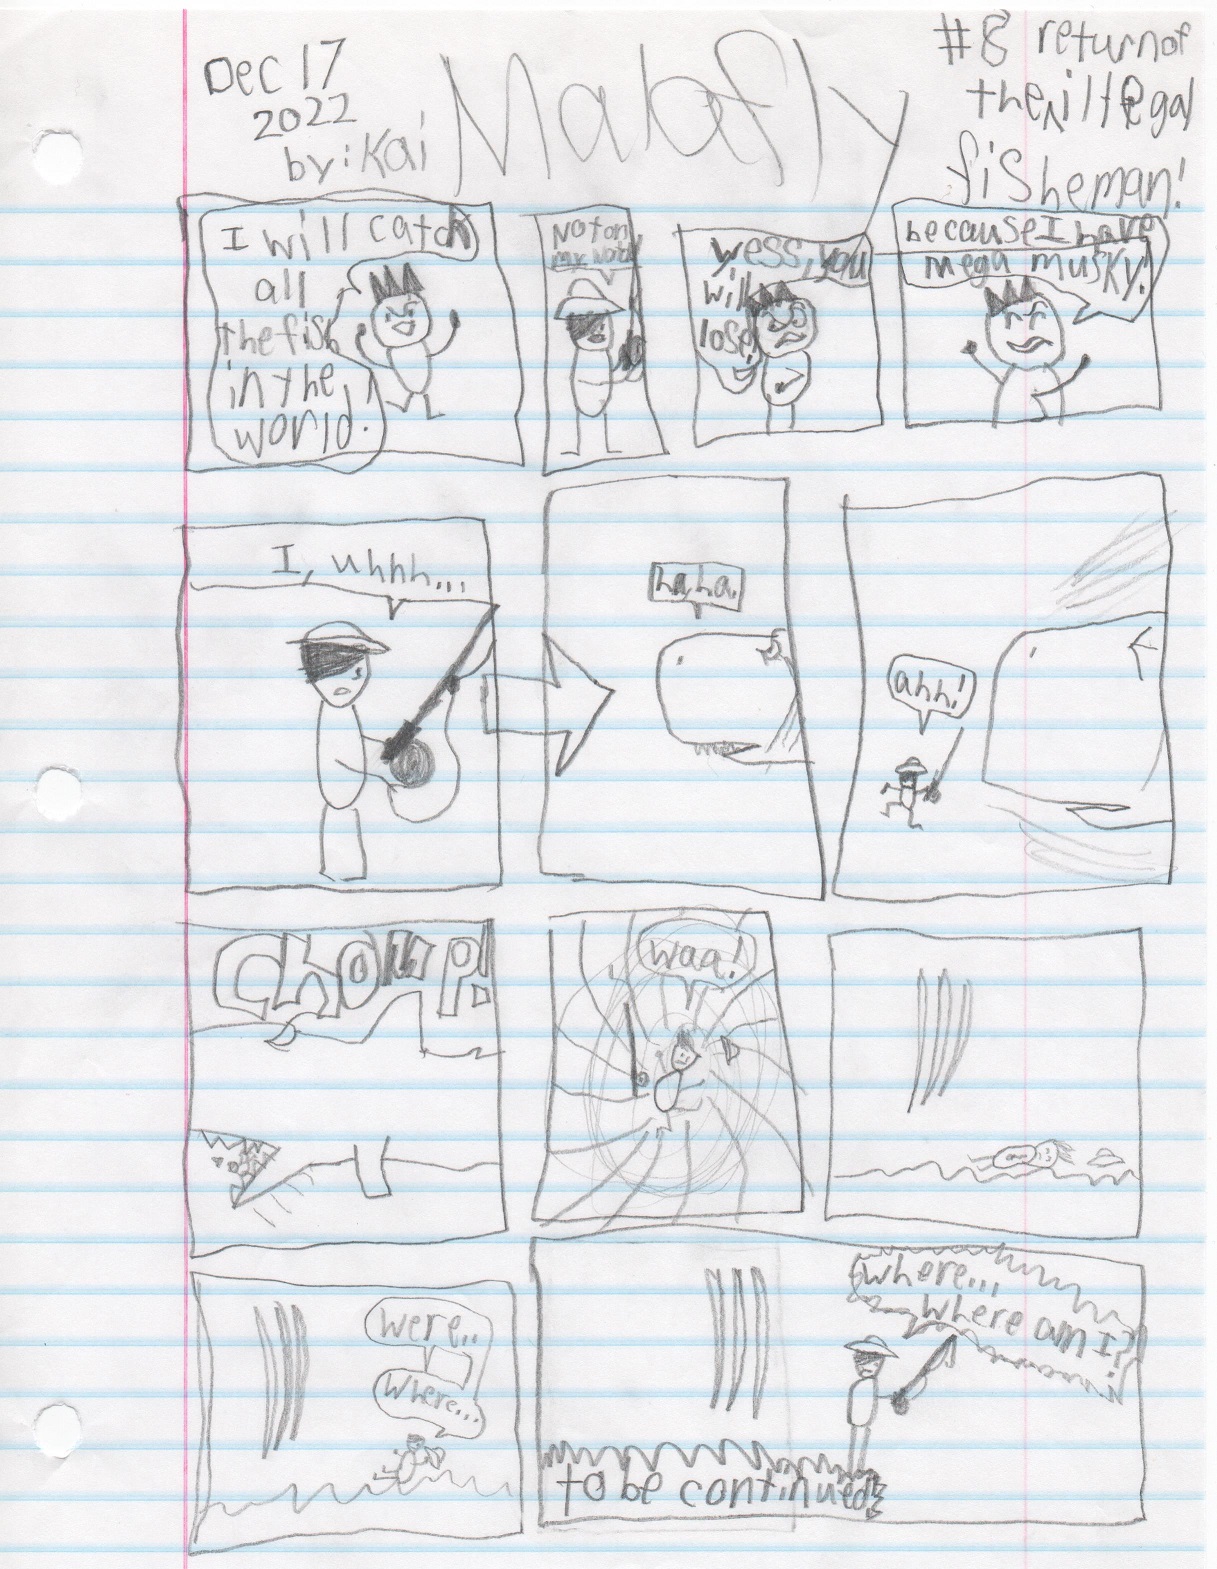 Dec 17
2022
by: Kai
Mabfly
#8 return of
the illegal
fisheman!
I will catch
all
the fish
in the
world!
Not on
my watch
wess, you
will
lose,
because I have
mega musky!
I, uhhh...
ha, ha.
ahh!
Chomp!
waa!
were..
where...
where...
where am I?
to be continued